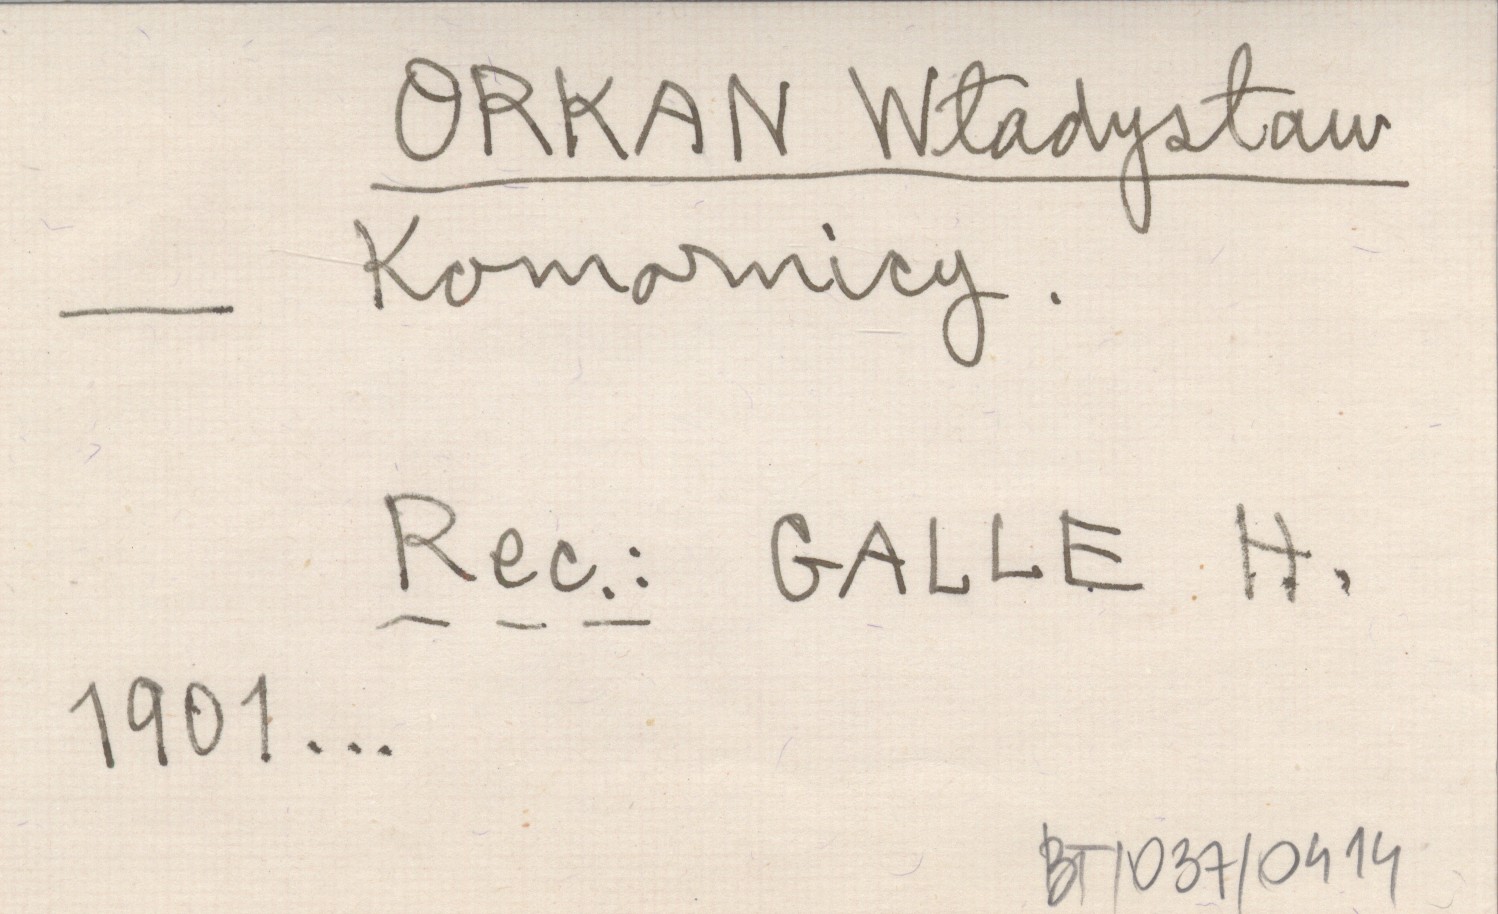 ORKAN Władysław
— Komornicy.
Rec.: GALLE H.
1901...
BT/037/0414